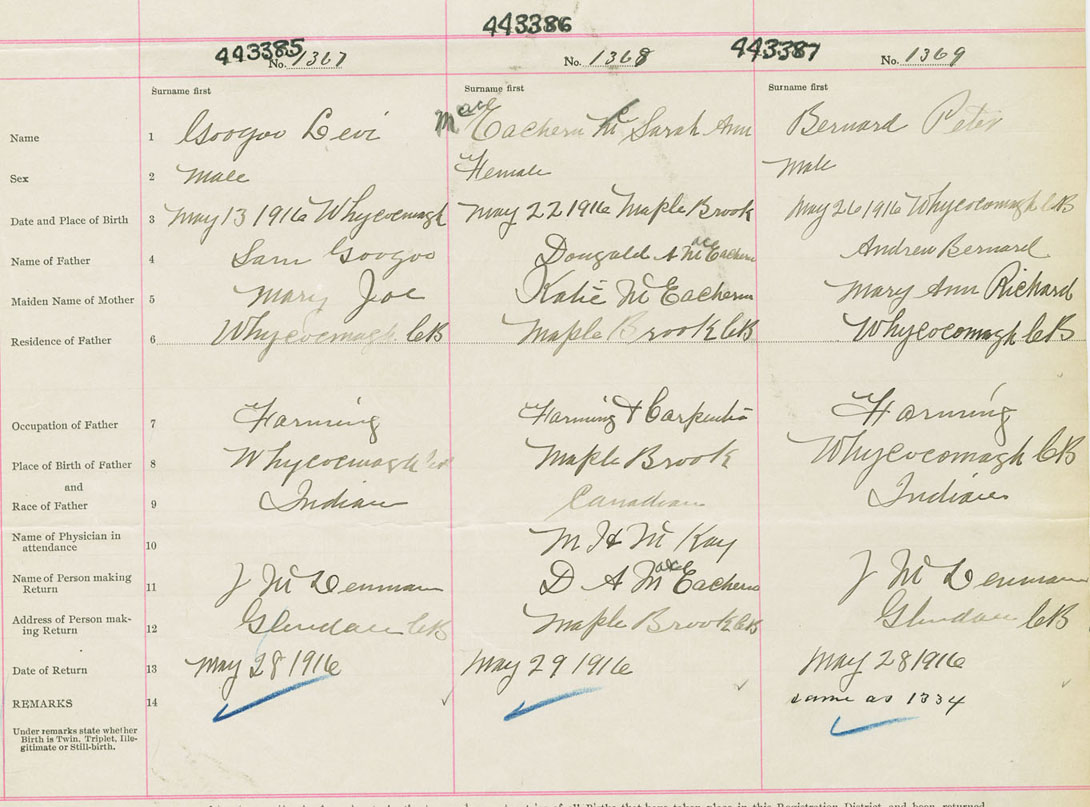 443385 443386 443387
No. 1367 No. 1368 No. 1369
Surname first Surname first Surname first
Name 1 Googoo Levi MacEachern Mc Sarah Ann Bernard Peter
Sex 2 Male Female Male
Date and Place of Birth 3 May 13 1916 Whycocomagh May 22 1916 Maple Brook May 26 1916 Whycocomagh CB
Name of Father 4 Sam Googoo Dougald A MacEachern Andrew Bernard
Maiden Name of Mother 5 Mary Joe Katie McEachern Mary Ann Richard
Residence of Father 6 Whycocomagh CB Maple Brook CB Whycocomagh CB
Occupation of Father 7 Farming Farming & Carpenter Farming
Place of Birth of Father 8 Whycocomagh Maple Brook Whycocomagh CB
and
Race of Father 9 Indian Canadian Indian
Name of Physician in
attendance 10 Mc Kay
Name of Person making
Return 11 J Mc Lennan D A MacEachern J Mc Lennan
Address of Person mak-
ing Return 12 Glendale CB Maple Brook CB Glendale CB
Date of Return 13 May 28 1916 May 29 1916 May 28 1916
REMARKS 14 same as 1334
Under remarks state whether
Birth is Twin, Triplet, Ille-
gitimate or Still-birth.
of all Births that have taken place in this Registration District and been returned